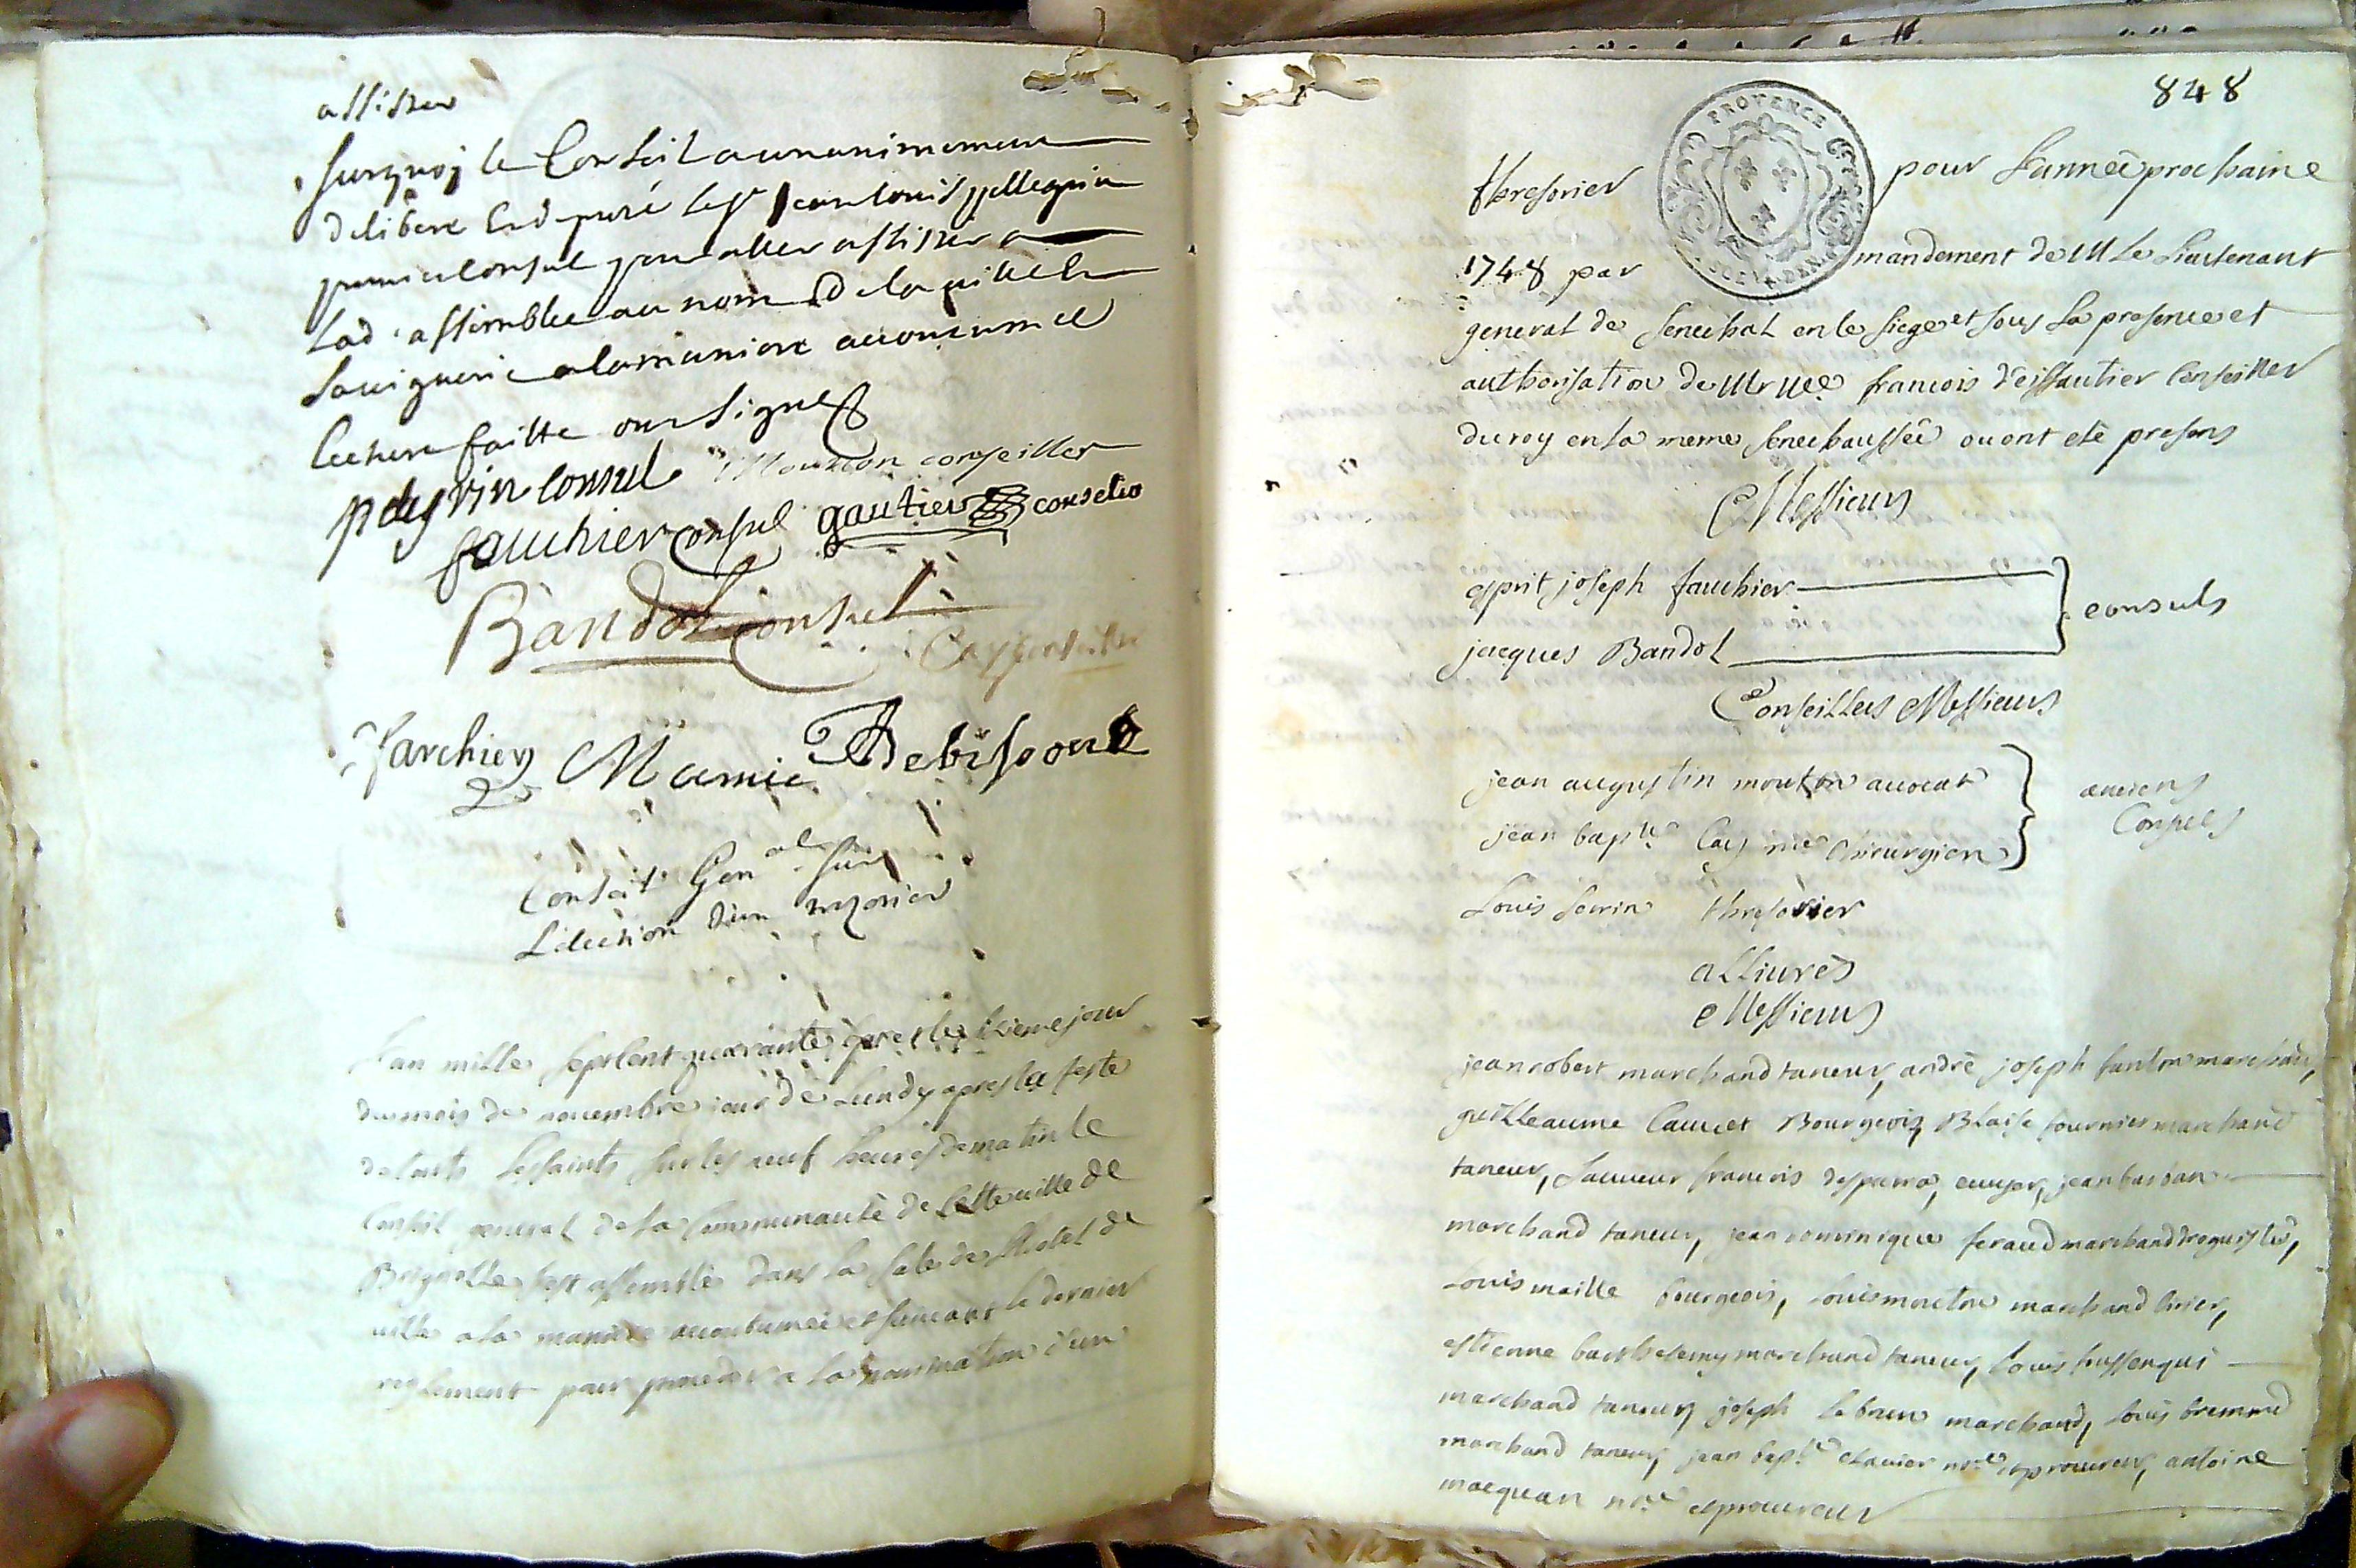 assister
surquoy le Conseil a unanimement
deliberé et deputé le sr jean louis pellegrin
premier Consul pour aller assister a
lad. assemblée au nom de la ville et
sa viguerie a la maniere accoutumee
lecture faitte ont signes
pelegrin consul Mouton conseiller
fauchier consul gautier conseller
Bandol Consul
Cay
farchier Mamie Debissoue
Conseil Genal sur
L'élection d'un trezorier
L'an mille sept cent quarante sept et le sixieme jour
du mois de novembre jour de Lundy apres la feste
de touts les saints sur les neuf heures de matin le
Conseil general de la Communauté de cette ville de
Brignolle s'est assemblé dans la sale de l'hotel de
ville a la maniere accoutumée et suivant le dernier
reglement pour proceder a la nomination d'un
848
PROVENCE
thresorier pour L'année prochaine
1748 par mandement de M Le Lieutenant
general de senechal en le siege et sous La presence et
authorisation de Mr Me francois d'eissautier Conseiller
du roy en la meme senechaussée ou ont eté presens
Messieurs
esprit joseph fauchier
consuls
jacques Bandol
Conseillers Messieurs
jean augustin mouton avocat
anciens
Consuls
jean bapte Cay me chirurgien
Louis thresorier
allivrés
Messieurs
jean robert marchand taneur, andré joseph fanton marchand,
guilleaume Caucet Bourgeois, Blaise fournier marchand
taneur, Sauveur francois desparra, ecuyer, jean barban
marchand taneur, jean dominique feraud marchand droguiste,
Louis maille bourgeois, Louis mouton marchand cirier,
estienne barthelemy marchand taneur, Louis
marchand taneur, joseph Lebrun marchand, Louis bremond
marchand taneur, jean bapte clavier nore et procureur, antoine
maequan nore et procureur